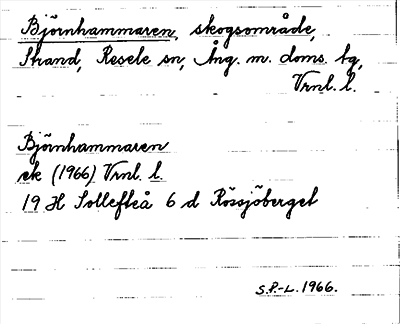 Björnhammaren, skogsområde,
Strand, Resele sn, Ång. m. doms. tg,
Vrnl. l.
Björnhammaren
ek (1966) Vrnl. l.
19 H Sollefteå 6 d Rössjöberget
S.P.-L. 1966.